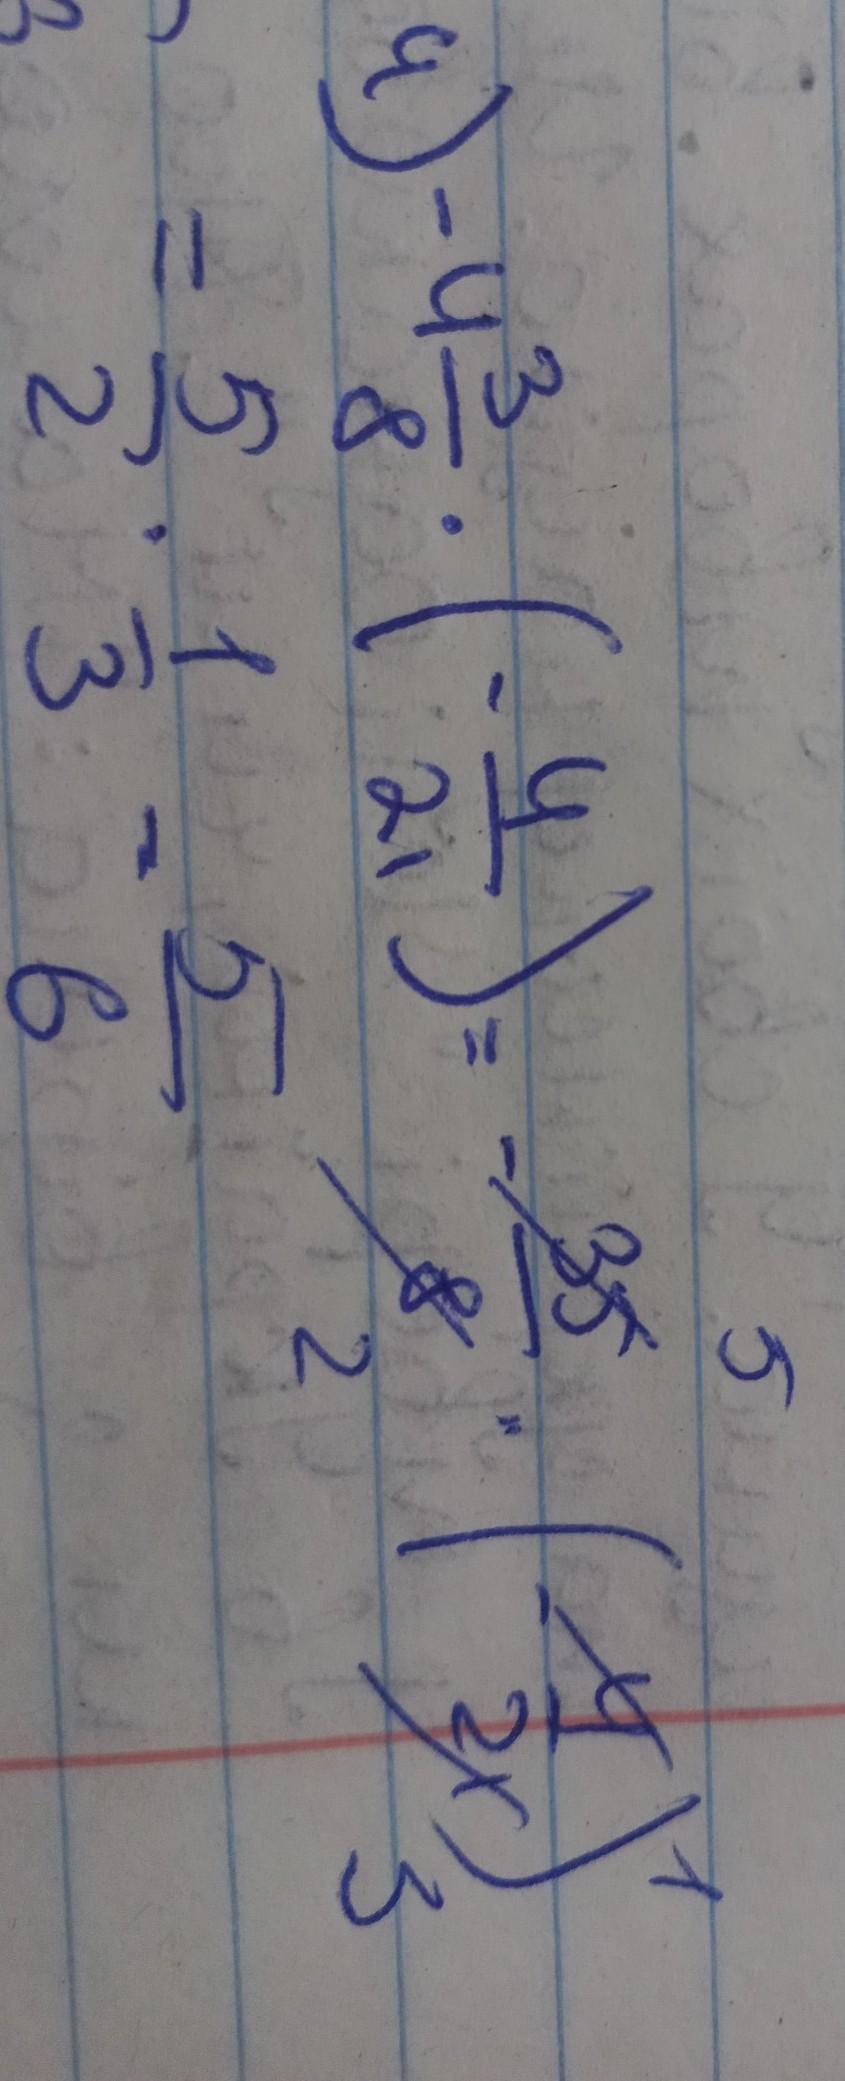 4) -4 3/8 · (- 4/21) = - 35/8 · (- 4/21) 5 2 1 3
= 5/2 · 1/3 - 5/6